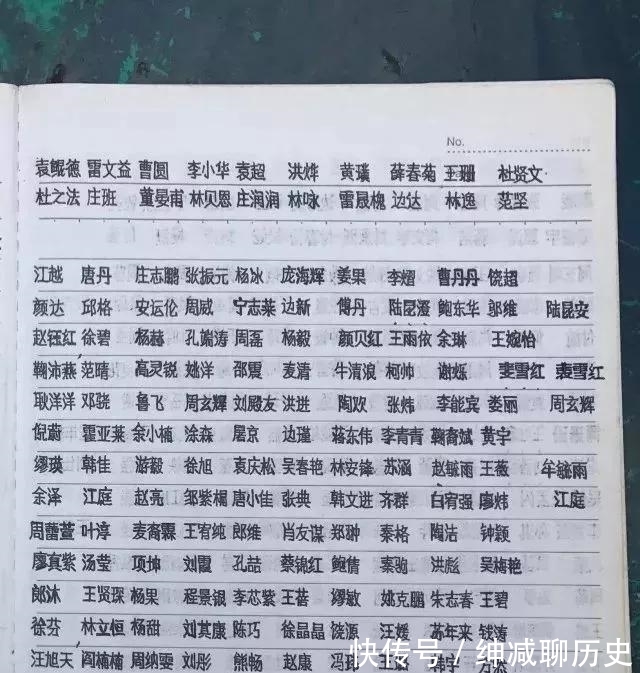 No.
袁鲲德 雷文益 曹圆 李小华 袁超 洪烨 黄璞 薛春菊 王珊 杜贤文
杜之法 庄班 董晏甫 林贝恩 庄润润 林咏 雷晟槐 边达 林逸 范坚
江越 唐丹 庄志鹏 张振元 杨冰 庞海辉 姜果 李熠 曹丹丹 饶超
颜达 邱格 安运伦 周威 宁志莱 边新 傅丹 陆昆澄 鲍东华 邬维 陆昆安
赵钰红 徐碧 杨赫 孔端涛 周磊 杨毅 颜贝红 王雨依 余琳 王婉怡
鞠沛燕 范晴 高灵锐 姚洋 邵震 麦清 牛清浪 柯帅 谢烁 裴雪红 袁雪红
耿洋洋 邓骁 鲁飞 周玄辉 刘殿友 洪进 陶欢 张炜 李能宾 娄丽 周玄辉
倪蔚 霍亚莱 余小楠 涂森 屠京 边瑾 蒋东伟 李青青 鞠裔斌 黄宇
缪瑛 韩佳 游毅 徐旭 袁庆松 吴春艳 林安锋 苏涵 赵敏雨 王薇 牟毓雨
金泽 江庭 赵亮 邹紫楣 唐小佳 张典 韩文进 齐群 白宥强 廖炜 江庭
周蕾萱 叶淳 麦裔霖 王宥纯 郎维 肖友谋 郑翀 秦格 陶洁 钟颖
廖真紫 汤莹 项坤 刘霞 孔喆 蔡锦红 鲍倩 秦驰 洪彪 吴梅艳
郎沐 王贤琛 杨果 程景银 李芯紫 王葚 缪敏 姚克鹏 朱志春 王碧
徐芬 林立恒 杨甜 刘其康 陈巧 徐晶晶 饶源 汪媛 苏年来 钱涛
汪旭天 阎楠楠 周纳雯 刘彤 熊畅 赵康 冯玮
快传号 / 细减聊历史